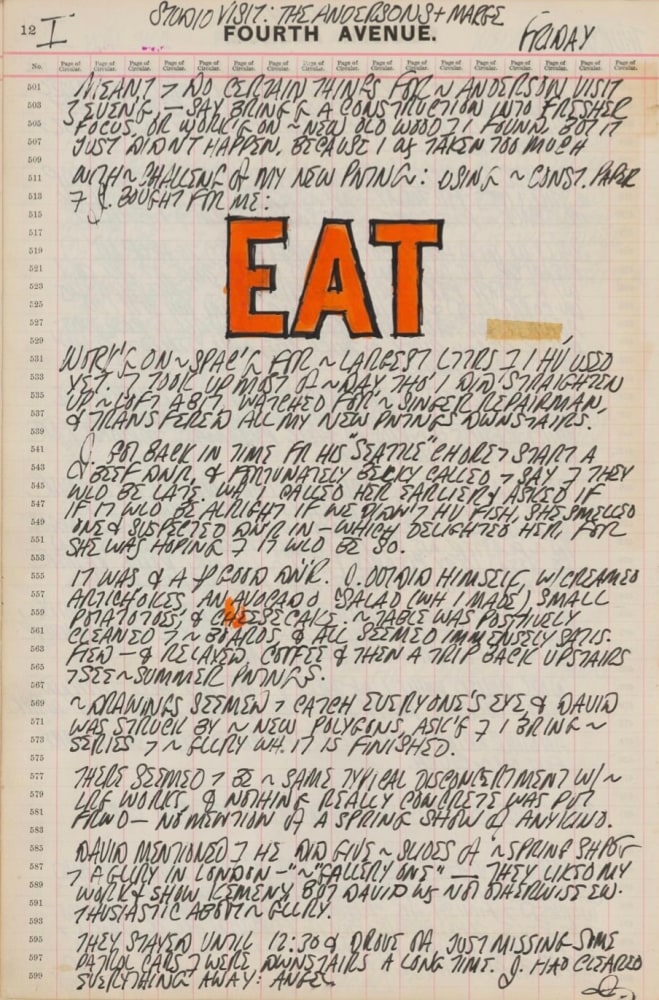 12 I STUDIO VISIT: THE ANDERSONS + MARGE
FOURTH AVENUE. FRIDAY
No. Page of Circular. Page of Circular. Page of Circular. Page of Circular. Page of Circular. Page of Circular. Page of Circular. Page of Circular. Page of Circular. Page of Circular. Page of Circular. Page of Circular. Page of Circular. Page of Circular. Page of Circular. Page of Circular.
501 MEANT > DO CERTAIN THINGS FOR ~ ANDERSON VISIT
503 EVEN'G — SAY BRING'G A CONSTRUCTION INTO FRESHER
505 FOCUS, OR WORK'G ON ~ NEW OLD WOOD 7 I FOUND, BUT IT
507 JUST DIDN'T HAPPEN, BECAUSE I WS TAKEN TOO MUCH
509
511 WITH ~ CHALLENG OF MY NEW PNTNG: USING ~ CONST. PAPER
513 7 J. BOUGHT FR ME:
515
517
519 EAT
521
523
525
527
529
531 WORK'G ON ~ SPAC'G FR ~ LARGEST LTTRS 7 I HV USED
533 YET. 7 TOOK UP MOST OF ~ DAY, THO' I DID STRAIGHTEN
535 UP ~ LOFT A BIT, WATCHED FOR ~ SINGER REPAIRMAN,
537 & TRANSFERED ALL MY NEW PNTNGS DWNSTAIRS.
539
541 J. GOT BACK IN TIME FR HIS "SEATTLE" CHORE > START A
543 BEEF DNR, & FORTUNATELY BECKY CALLED > SAY 7 THEY
545 WLD BE LATE. WH I CALLED HER EARLIER & ASKED IF
547 IF IT WLD BE ALRIGHT IF WE DIDN'T HV FISH, SHE SMELLED
549 ONE & SUSPECTED DN'R IN — WHICH DELIGHTED HER, FOR
551 SHE WAS HOPING 7 IT WLD BE SO.
553
555 IT WAS & A GOOD DN'R. J. OUTDID HIMSELF, W/ CREAMED
557 ARTICHOKES, AN AVOCADO SALAD (WH I MADE) SMALL
559 POTATOTOES, & CHEESECAKE. ~ TABLE WAS POSITIVELY
561 CLEANED 7 ~ BOARDS, & ALL SEEMED IMMENSELY SATIS-
563 FIED — & RELAXED, COFFEE & THEN A TRIP BACK UPSTAIRS
565 > SEE ~ SUMMER PNTNGS.
567
569 ~ DRAWINGS SEEMED > CATCH EVERYONE'S EYE, & DAVID
571 WAS STRUCK BY ~ NEW POLYGONS, ASK'G 7 I BRING ~
573 SERIES > ~ GLLRY WH. IT IS FINISHED.
575
577 THERE SEEMED > BE ~ SAME TYPICAL DISCONCERTMENT W/ ~
579 LRG WORKS, & NOTHING REALLY CONCRETE WAS PUT
581 FRWD — NO MENTION OF A SPRING SHOW OF ANY KIND.
583
585 DAVID MENTIONED 7 HE DID GIVE ~ SLIDES OF ~ SPRING
587 > A GLLRY IN LONDON — "~ "GALLERY ONE" — THEY LIKED MY
589 WORK & SHOW KEMENY BUT DAVID WS NOT OTHERWISE EN-
591 THUSIASTIC ABOUT ~ GLLRY.
593
595 THEY STAYED UNTIL 12:30 & DROVE OFF, JUST MISSING SOME
597 PATROL CARS 7 WERE DWNSTAIRS A LONG TIME. J. HAD CLEARED
599 EVERYTHING AWAY: ANGEL